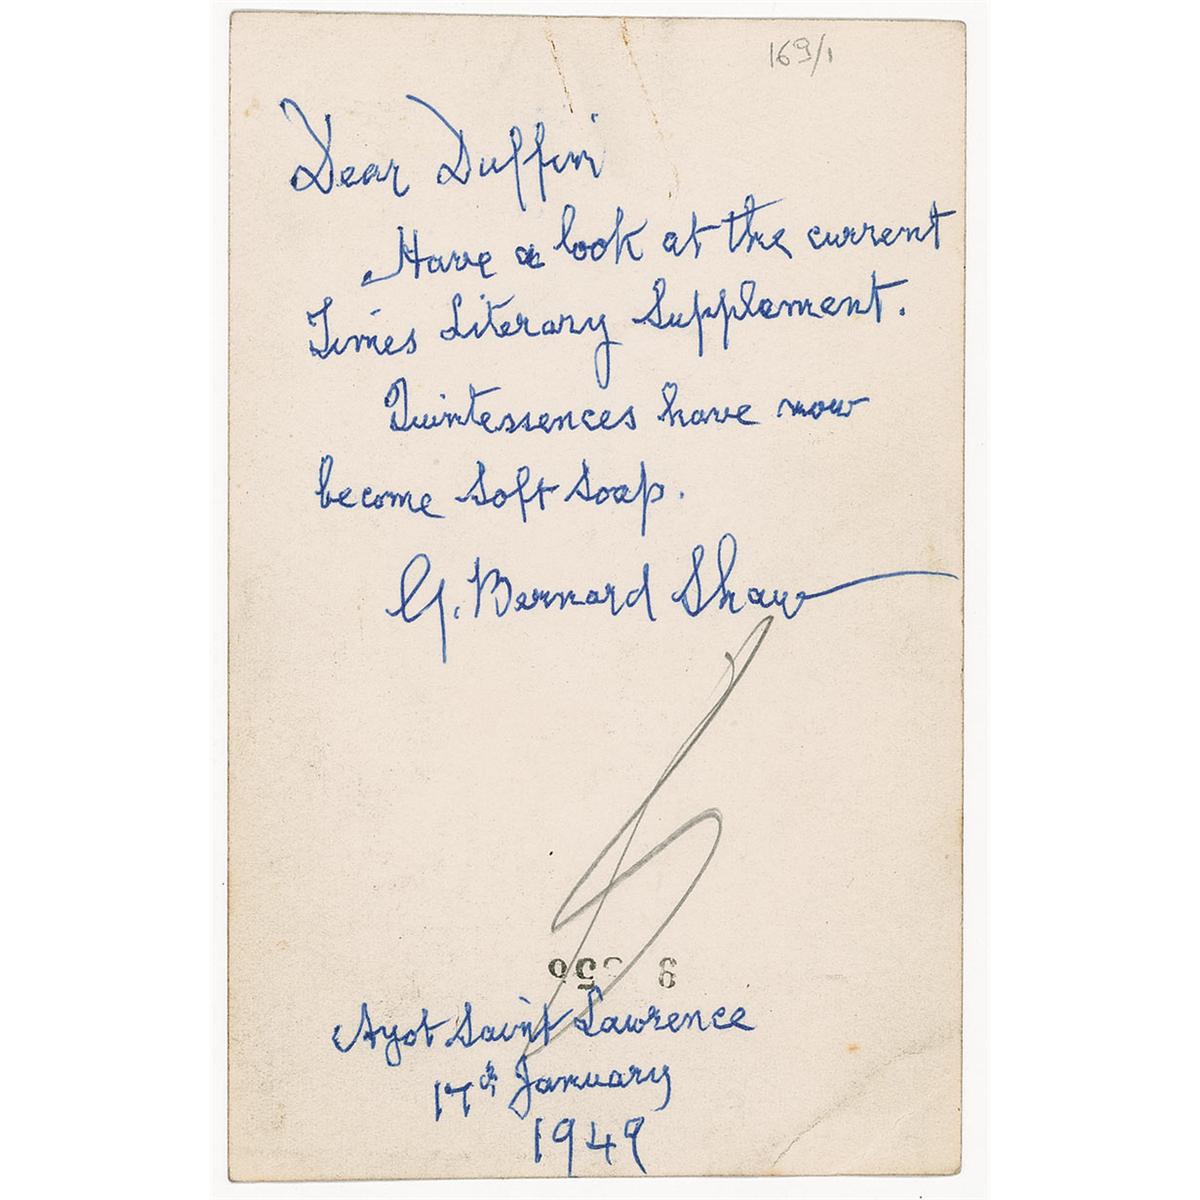 169/1
Dear Duffin
Have a look at the current
Times Literary Supplement.
Quintessences have now
become soft soap.
G. Bernard Shaw
Ayot Saint Lawrence
17th January
1949